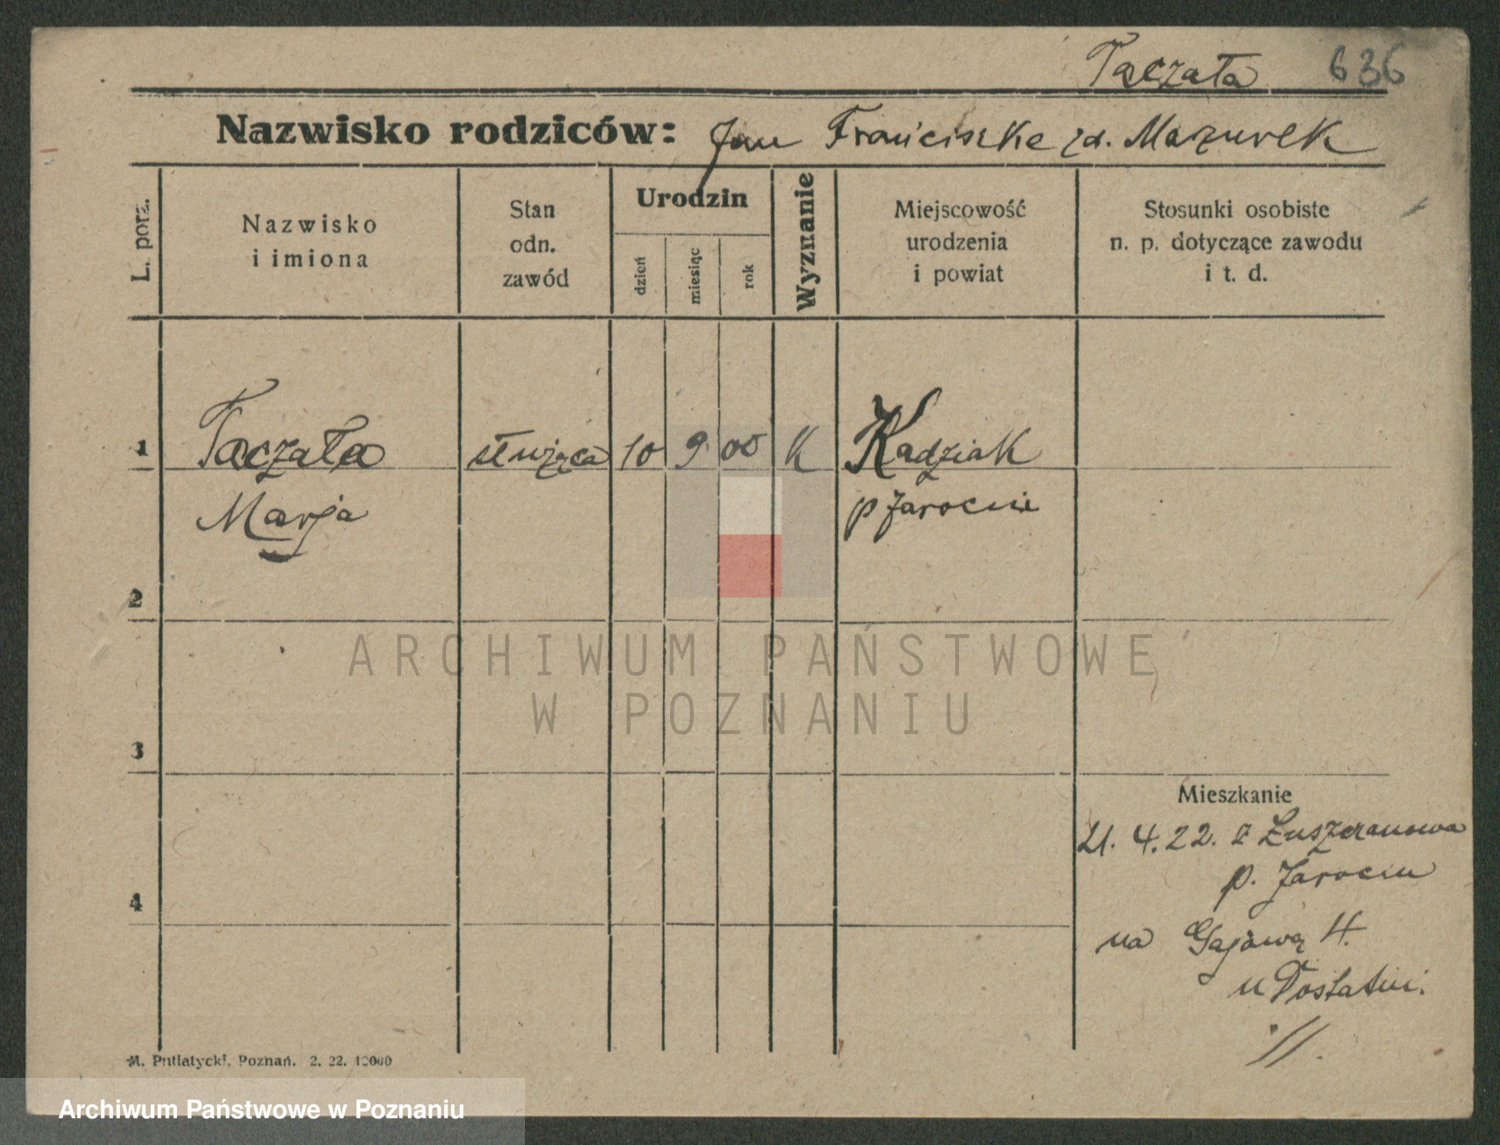 Taczała 636
Nazwisko rodziców: Jan Franciszka zd. Mazurek
L. porz.
Nazwisko
i imiona
Stan
odn.
zawód
Urodzin
dzień
miesiąc
rok
Wyznanie
Miejscowość
urodzenia
i powiat
Stosunki osobiste
n. p. dotyczące zawodu
i t. d.
1 Taczała służąca 10 9 00 K Kadziak
Marja p Jarocin
2
3
Mieszkanie
21. 4. 22. z
p. Jarocin
4
na Gajową 4.
u
M. Putiatycki, Poznań. 2. 22. 10000
ARCHIWUM PAŃSTWOWE
W POZNANIU
Archiwum Państwowe w Poznaniu